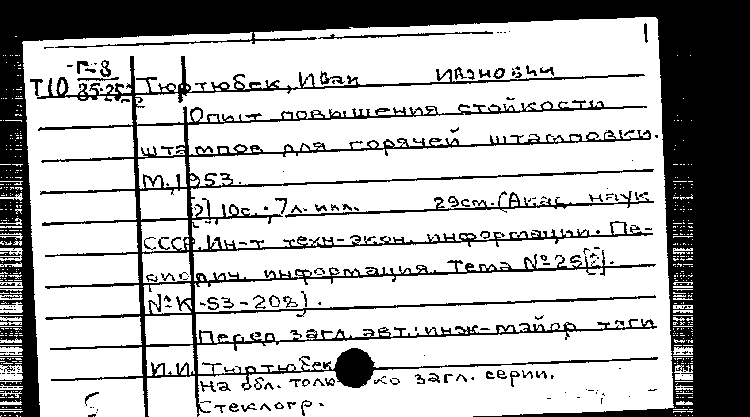 Г-8
Т10 35-25
Тюртюбек, Иван Иванович
Опыт повышения стойкости
штампов для горячей штамповки.
М., 1953.
[2], 10с.; 7л. илл. 29см. (Акад. наук
СССР. Ин-т техн-экон. информации. Пе-
риодич. информация. Тема №25[2].
№К-53-208).
Перед загл. авт.: инж-майор тяги
И.И. Тюртюбек
На обл. только загл. серии.
Стеклогр.